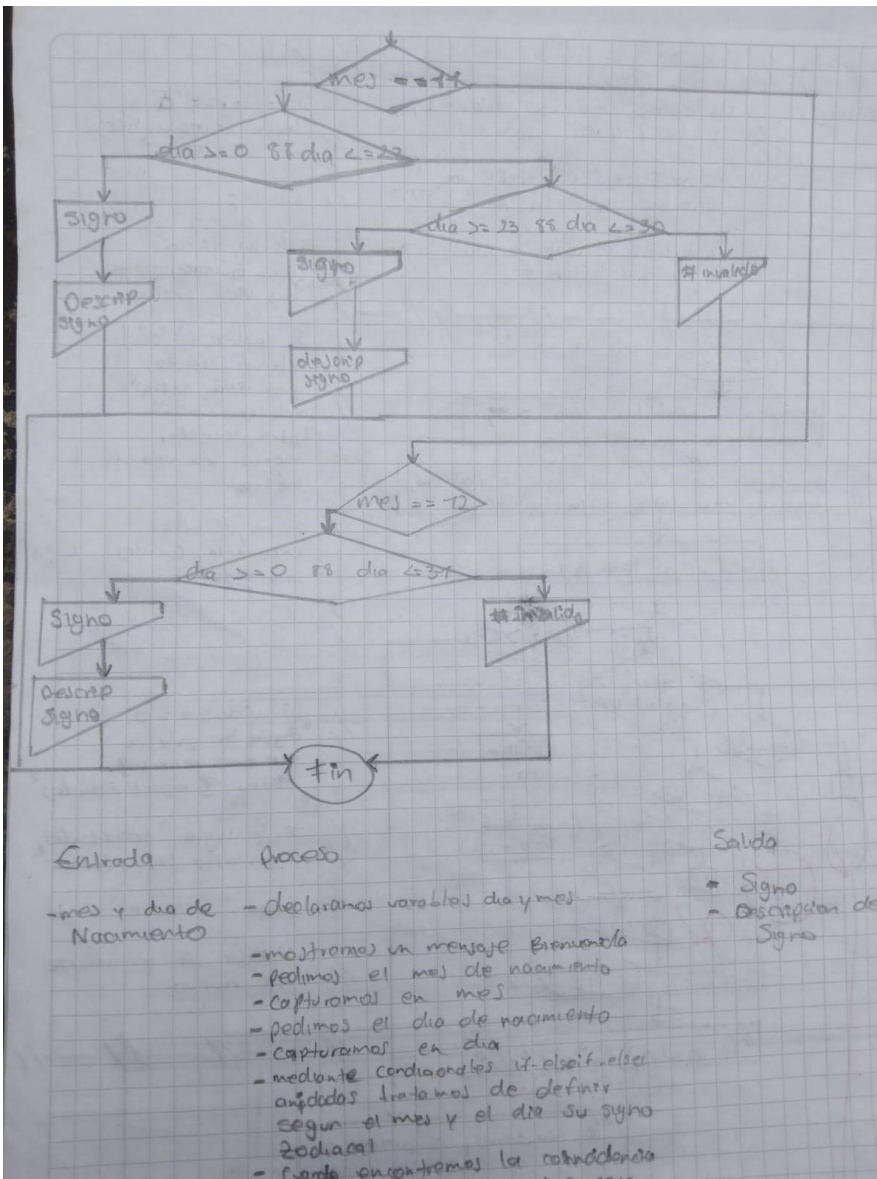 mes == 11
dia >= 0 && dia <= 22
signo
Descrip
signo
dia >= 23 && dia <= 30
signo
descrip
signo
# invalido
mes == 12
dia >= 0 && dia <= 31
Signo
Descrip
signo
# Invalido
Fin
Entrada
-mes y dia de
Nacimiento
Proceso
- declaramos variables dia y mes
-mostramos un mensaje Bienvenida
-pedimos el mes de nacimiento
-capturamos en mes
-pedimos el dia de nacimiento
-capturamos en dia
-mediante condicionales if-elseif-else
anidadas tratamos de definir
segun el mes y el dia su signo
zodiacal
- Cuando encontremos la coincidencia
Salida
- Signo
- Descripcion de
Signo